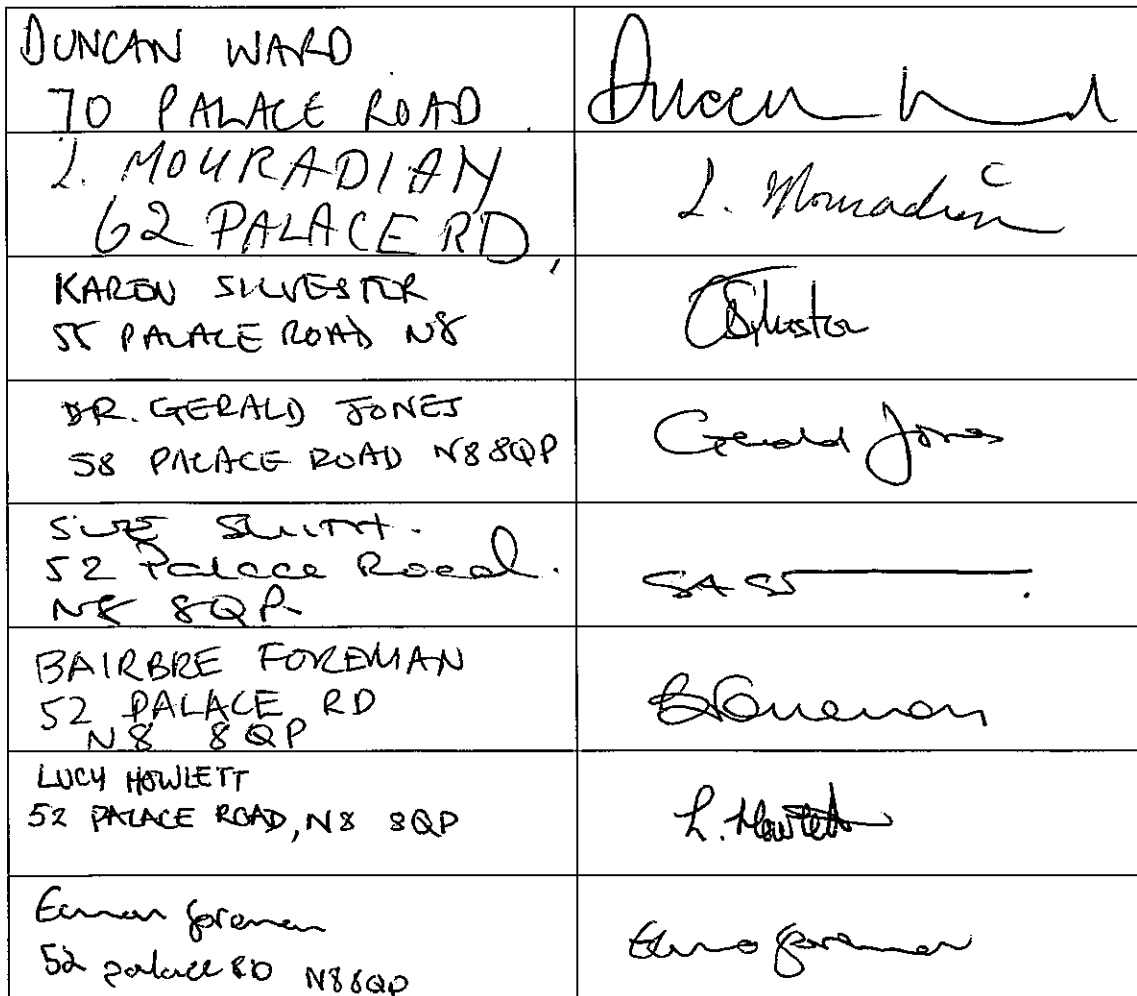 DUNCAN WARD
70 PALACE ROAD.
L. MOURADIAN
62 PALACE RD,
L. Mouradian
KAREN SILVESTER
55 PALACE ROAD N8
Silvester
DR. GERALD JONES
58 PALACE ROAD N8 8QP
Gerald Jones
SUE SMITH.
52 Palace Road.
N8 8QP
BAIRBRE FOREMAN
52 PALACE RD
N8 8QP
B Foreman
LUCY HOWLETT
52 PALACE ROAD, N8 8QP
L. Howlett
foreman
52 palace RD N8 8QP
foreman